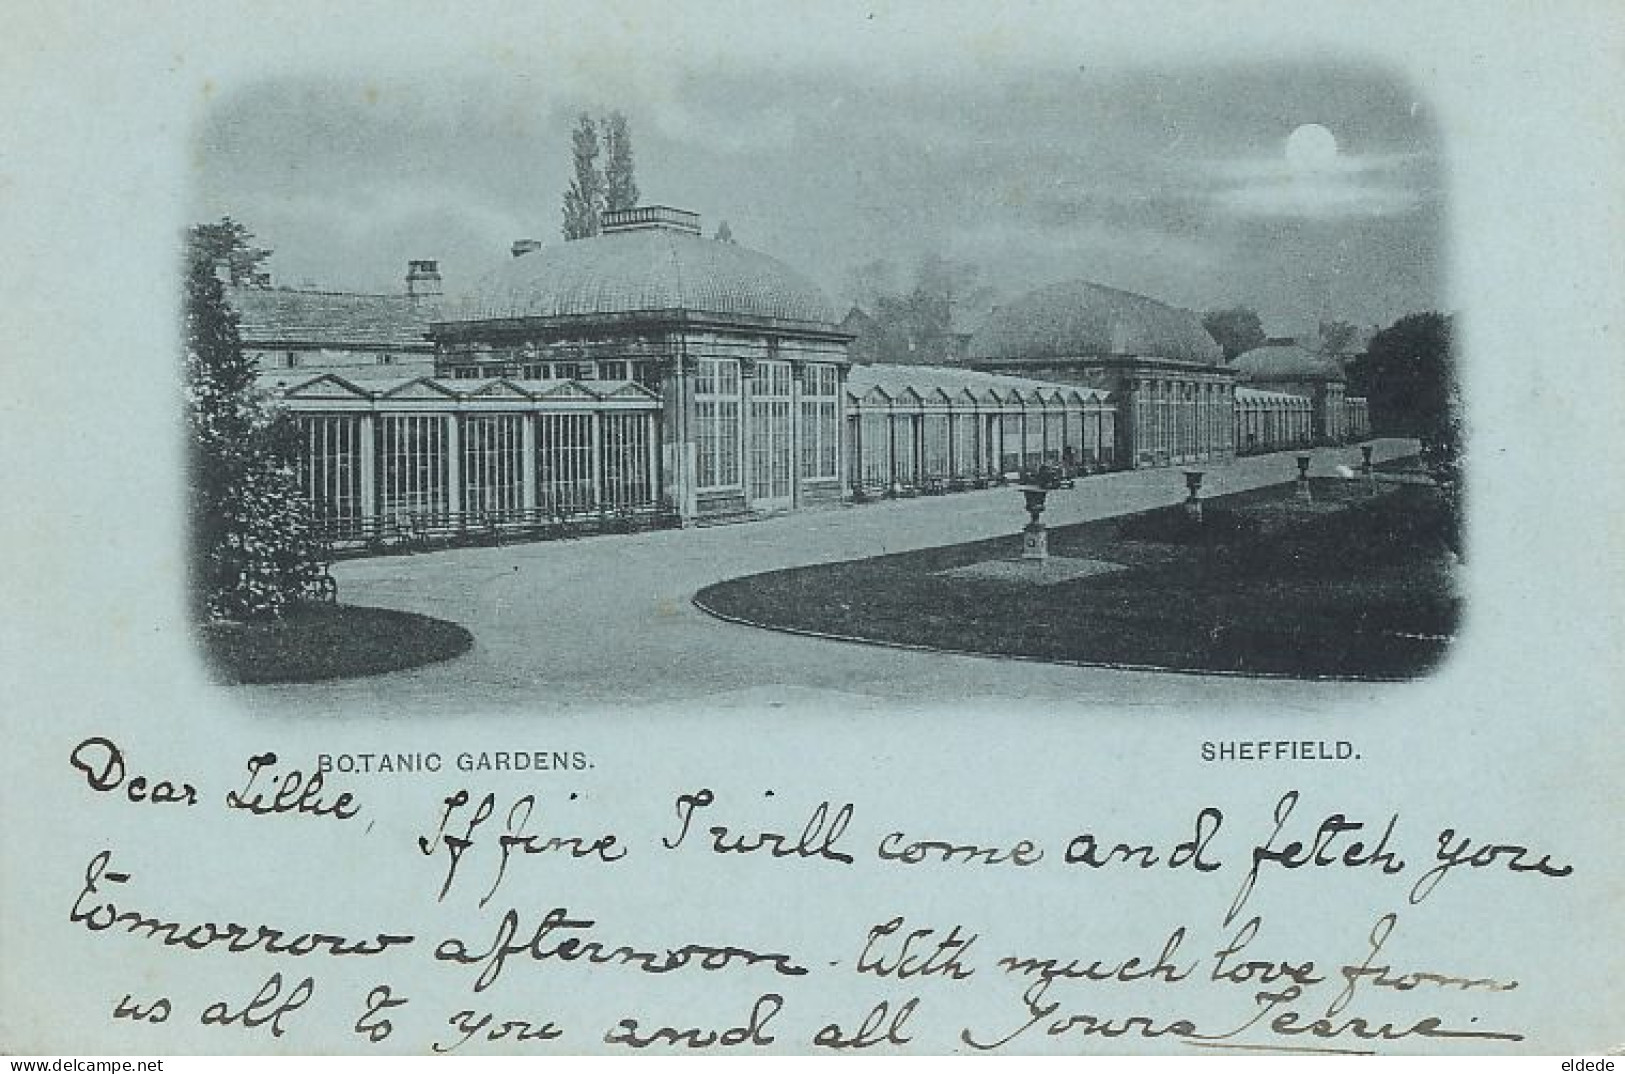 BOTANIC GARDENS.
SHEFFIELD.
Dear Lillie, If fine I will come and fetch you
tomorrow afternoon. With much love from
us all to you and all Yours Jessie
www.delcampe.net
eldede